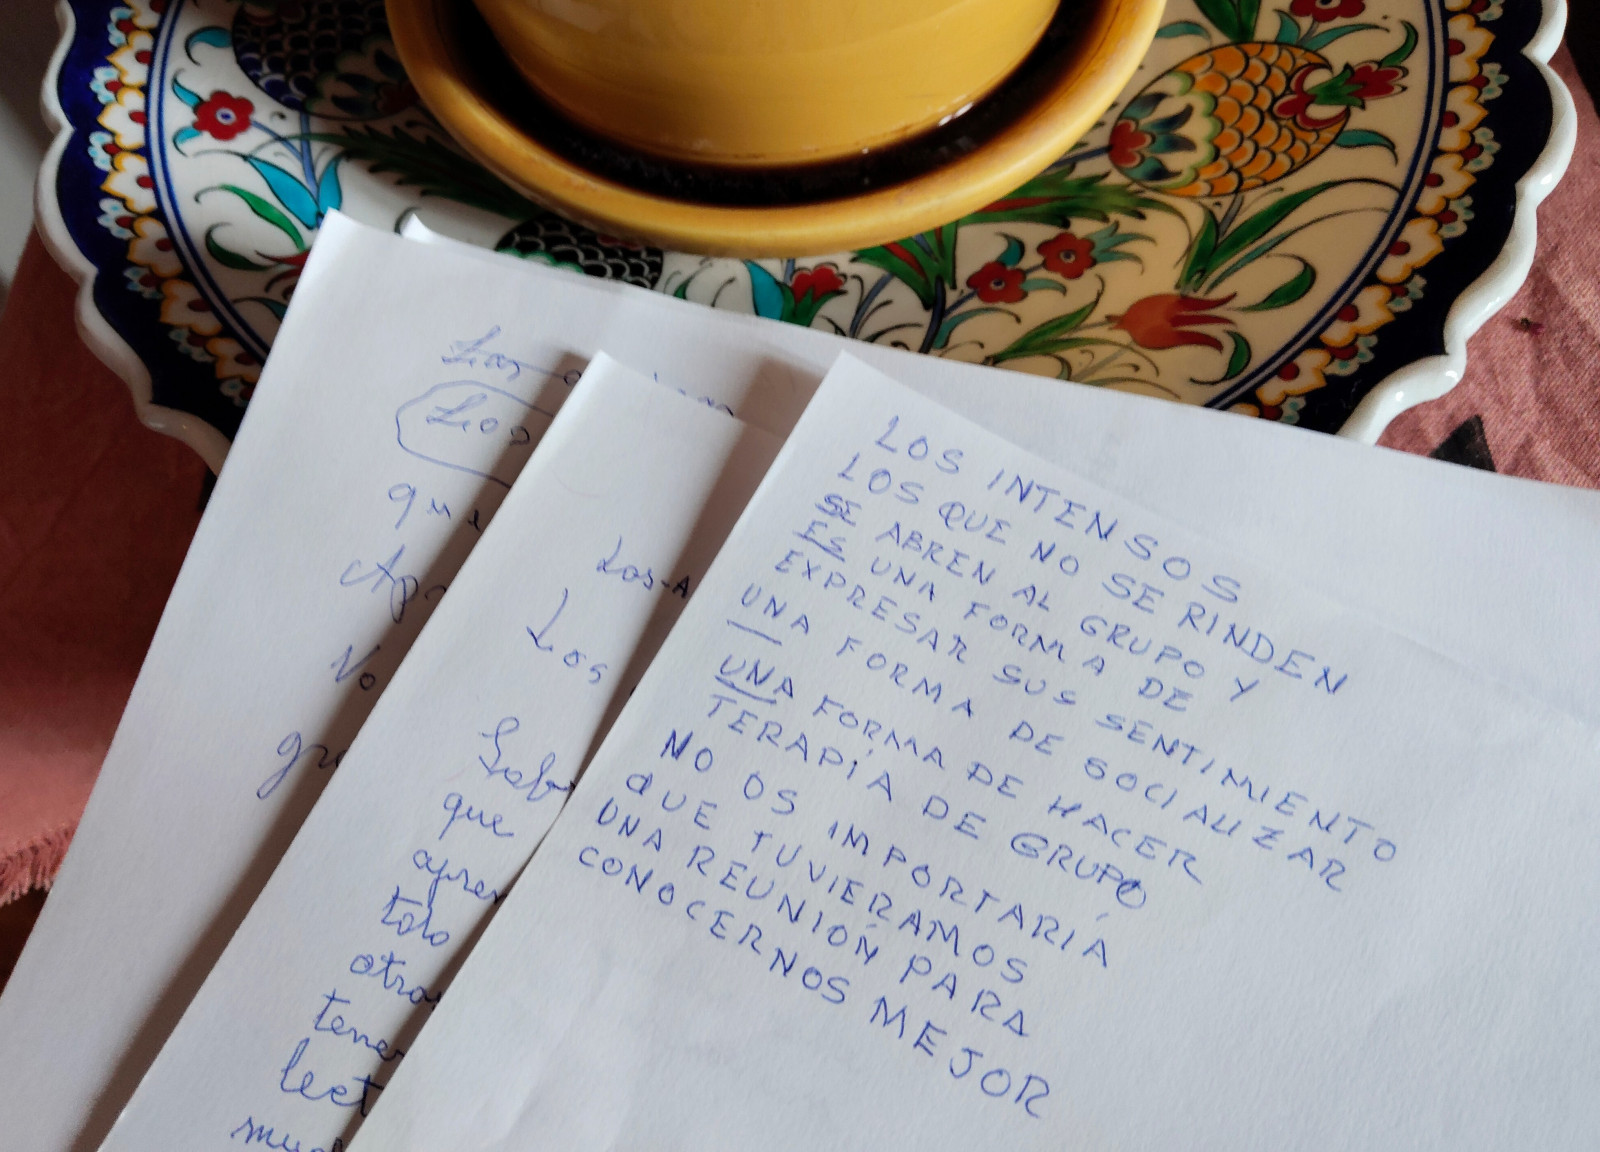 Los
que
No
Los-A
Los
que
todo
LOS INTENSOS
LOS QUE NO SE RINDEN
SE ABREN AL GRUPO Y
ES UNA FORMA DE
EXPRESAR SUS SENTIMIENTO
UNA FORMA DE SOCIALIZAR
UNA FORMA DE HACER
TERAPIA DE GRUPO
NO OS IMPORTARÍA
QUE TUVIERAMOS
UNA REUNIÓN PARA
CONOCERNOS MEJOR